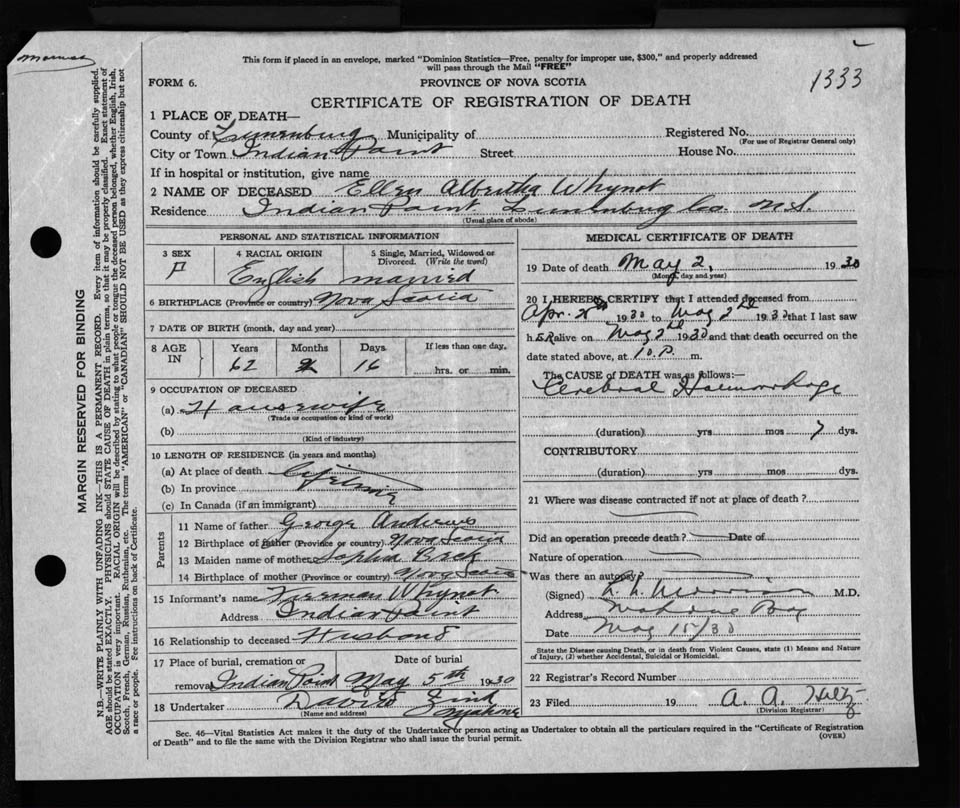 This form if placed in an envelope, marked "Dominion Statistics—Free, penalty for improper use, $300," and properly addressed
will pass through the Mail "FREE"
1333
FORM 6.
PROVINCE OF NOVA SCOTIA
CERTIFICATE OF REGISTRATION OF DEATH
1 PLACE OF DEATH—
County of Lunenburg Municipality of Registered No.
(For use of Registrar General only)
City or Town Indian Point Street House No.
If in hospital or institution, give name
2 NAME OF DECEASED Ellen Albertha Whynot
Residence Indian Point Lunenburg Co. N.S.
(Usual place of abode)
PERSONAL AND STATISTICAL INFORMATION
3 SEX
F
4 RACIAL ORIGIN
English
5 Single, Married, Widowed or
Divorced. (Write the word)
married
6 BIRTHPLACE (Province or country) Nova Scotia
7 DATE OF BIRTH (month, day and year)
8 AGE
IN
Years Months Days If less than one day,
62 16 hrs. or min.
9 OCCUPATION OF DECEASED
(a) Housewife
(Trade or occupation or kind of work)
(b)
(Kind of industry)
10 LENGTH OF RESIDENCE (in years and months)
(a) At place of death
(b) In province
(c) In Canada (if an immigrant)
Parents
11 Name of father George Andrews
12 Birthplace of father (Province or country) Nova Scotia
13 Maiden name of mother
14 Birthplace of mother (Province or country) Nova Scotia
15 Informant's name Freeman Whynot
Address Indian Point
16 Relationship to deceased Husband
17 Place of burial, cremation or Date of burial
removal Indian Point May 5th 1930
18 Undertaker David
(Name and address)
MEDICAL CERTIFICATE OF DEATH
19 Date of death May 2, 1930
(Month, day and year)
20 I HEREBY CERTIFY that I attended deceased from
Apr. 1930 to May 2nd 1930 that I last saw
h er alive on May 2nd 1930 and that death occurred on the
date stated above, at 10 P. m.
The CAUSE of DEATH was as follows:—
Cerebral Haemorrhage
(duration) yrs mos 7 dys.
CONTRIBUTORY
(duration) yrs. mos. dys.
21 Where was disease contracted if not at place of death?
Did an operation precede death? Date of
Nature of operation
Was there an autopsy?
(Signed) M.D.
Address Mahone Bay
Date May 15/30
State the Disease causing Death, or in death from Violent Causes, state (1) Means and Nature
of Injury, (2) whether Accidental, Suicidal or Homicidal.
22 Registrar's Record Number
23 Filed 19 A. A.
(Division Registrar)
Sec. 46—Vital Statistics Act makes it the duty of the Undertaker or person acting as Undertaker to obtain all the particulars required in the "Certificate of Registration
of Death" and to file the same with the Division Registrar who shall issue the burial permit.
(OVER)
MARGIN RESERVED FOR BINDING
N.B.—WRITE PLAINLY WITH UNFADING INK—THIS IS A PERMANENT RECORD. Every item of information should be carefully supplied.
AGE should be stated EXACTLY. PHYSICIANS should STATE CAUSE OF DEATH in plain terms, so that it may be properly classified. Exact statement of
OCCUPATION is very important. RACIAL ORIGIN will be described by stating to what people or tongue the deceased person belonged, whether English, Irish,
Scotch, French, German, Russian, Ruthenian, etc. The terms "AMERICAN" or "CANADIAN" SHOULD NOT BE USED as they express citizenship but not
a race or people. See instructions on back of Certificate.